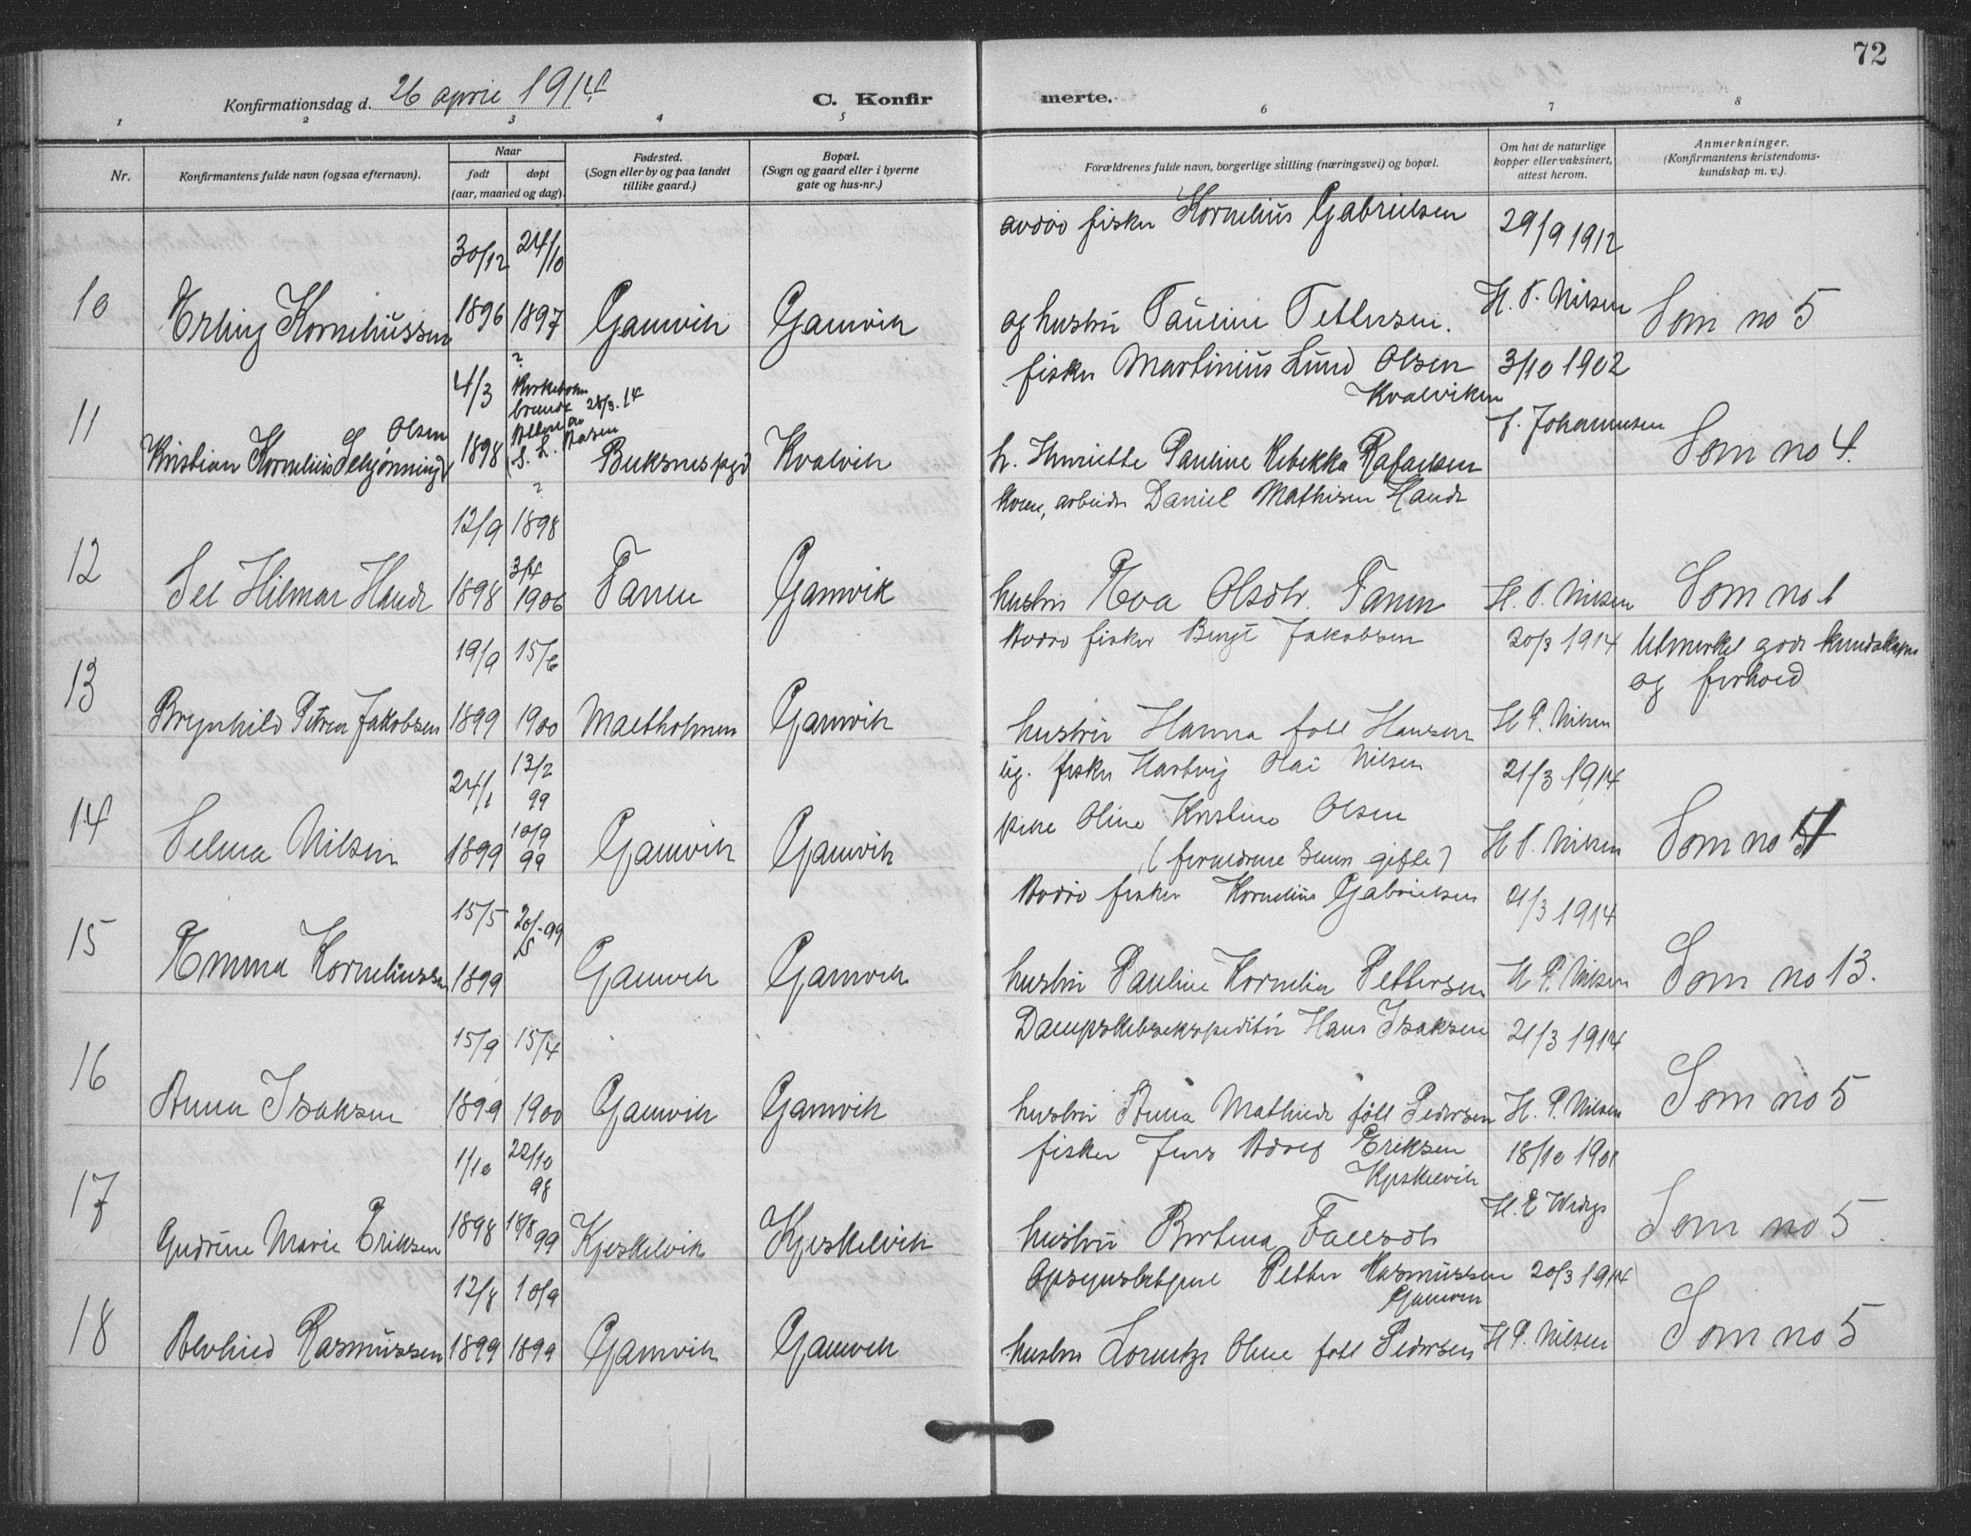 72
Konfirmationsdag d. 26 april 1914
C. Konfirmerte.
1 2 3 4 5 6 7 8
Nr.
Konfirmantens fulde navn (ogsaa efternavn).
Naar
født døpt
(aar, maaned og dag).
Fødested.
(Sogn eller by og paa landet
tillike gaard.)
Bopæl.
(Sogn og gaard eller i byerne
gate og hus-nr.)
Forældrenes fulde navn, borgerlige stilling (næringsvei) og bopæl.
Om hat de naturlige
kopper eller vaksinert,
attest herom.
Anmerkninger.
(Konfirmantens kristendoms-
kundskap m. v.).
30/12 24/10 avdøo fisker Kornelius Gabrielsen 29/9 1912
10 Erling Korneliussen 1896 1897 Gamvik Gamvik og hustru Pauline Pettersen. H. P. Nilsen Som no 5
4/3 ? fisker Martinius Lund Olsen 3/10 1902
Kirkebokn brændt 28/3.14 Kvalviken
11 Kristian Kornelius Olsen 1898 Buksnes pgd Kvalvik h. Henriette Pauline Rebekka Rafaelsen J. Johannesen Som no 4.
12/9 ? 1898 arbeider Daniel Mathisen Hande
12 Hilmar Hande 1898 3/4 1906 Tanen Gamvik hustru Eva Olsdtr. Tanen H. P. Nilsen Som no 1
19/9 15/6 Avdøo fisker Bengt Jakobsen 20/3 1914 Utmerket gode kundskaper
og forhold
13 Brynhild Petrea Jakobsen 1899 1900 Gamvik hustru Hanna føtt Hansen H P. Nilsen
24/1 13/2 99 ug. fisker Hartvig Olai Nilsen 21/3 1914
14 Selma Nilsen 1899 10/9 99 Gamvik Gamvik pike Oline Kristine Olsen H P. Nilsen Som no
(forældrene senere gifte)
15/5 20/5-99 Avdøo fisker Kornelius Gabrielsen 21/3 1914
15 Emma Korneliussen 1899 Gamvik Gamvik hustru Pauline Kornelia Pettersen H P. Nilsen Som no 13.
15/9 15/4 Dampskibsekspeditør Hans Isaksen 21/3 1914
16 Anna Isaksen 1899 1900 Gamvik Gamvik hustru Anna Mathilde føtt Pedersen H. P. Nilsen Som no 5
1/10 22/10 98 fisker Jens Adolf Eriksen 18/10 1901
Kjeskelvik
17 Gudrune Marie Eriksen 1898 18/8 99 Kjeskelvik Kjeskelvik hustru Bertina H. E Som no 5.
12/8 10/9 Opsynsbetjent Petter Rasmussen 20/3 1914
Gamvik
18 Alvhild Rasmussen 1899 1899 Gamvik Gamvik hustru Lorentze Oline føtt Pedersen H P. Nilsen Som no 5